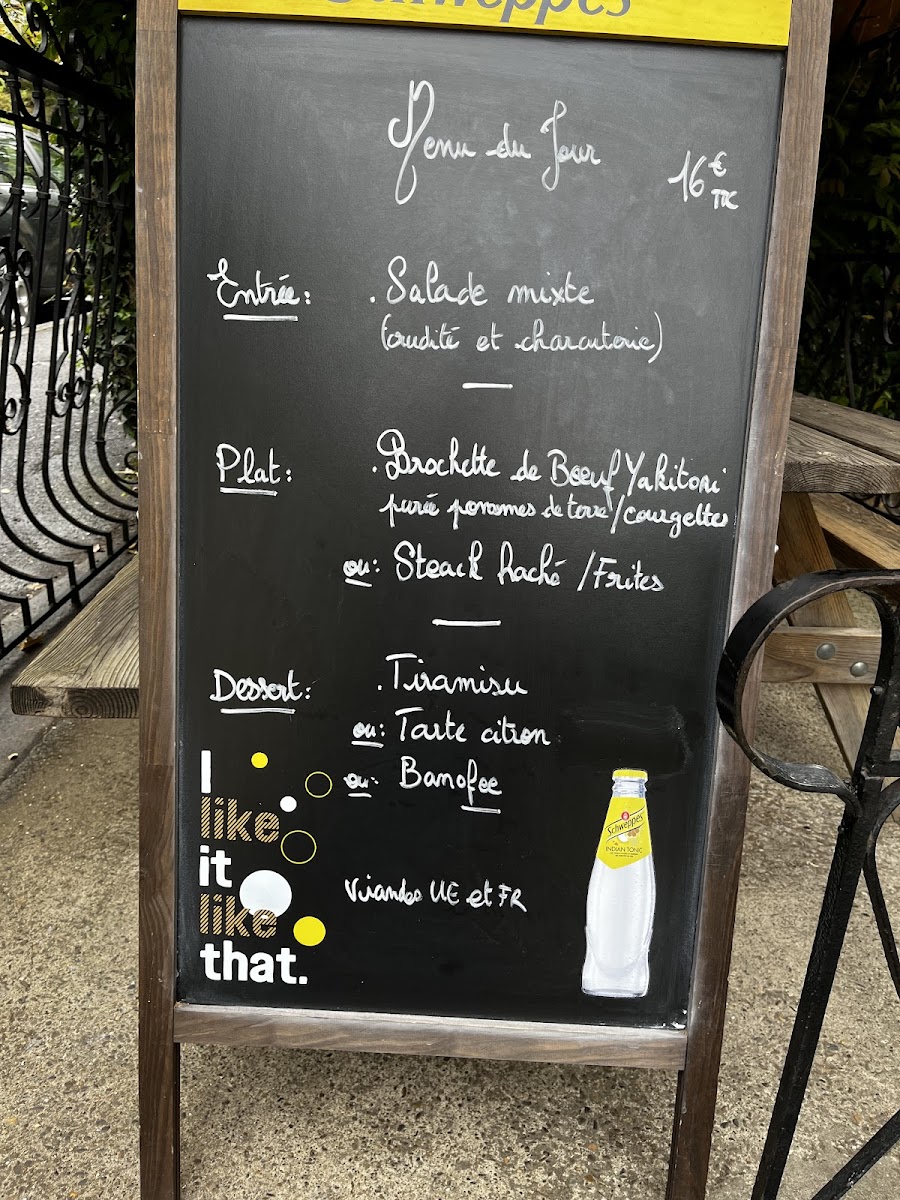 Schweppes
Menu du Jour
16€
TTC
Entrée: . Salade mixte
(crudité et charcuterie)
Plat: . Brochette de Bœuf Yakitori
purée pommes de terre/courgettes
ou: Steack haché / Frites
Dessert: . Tiramisu
ou: Tarte citron
ou: Banofee
Viandes UE et FR
I
like
it
like
that.
Schweppes
INDIAN TONIC